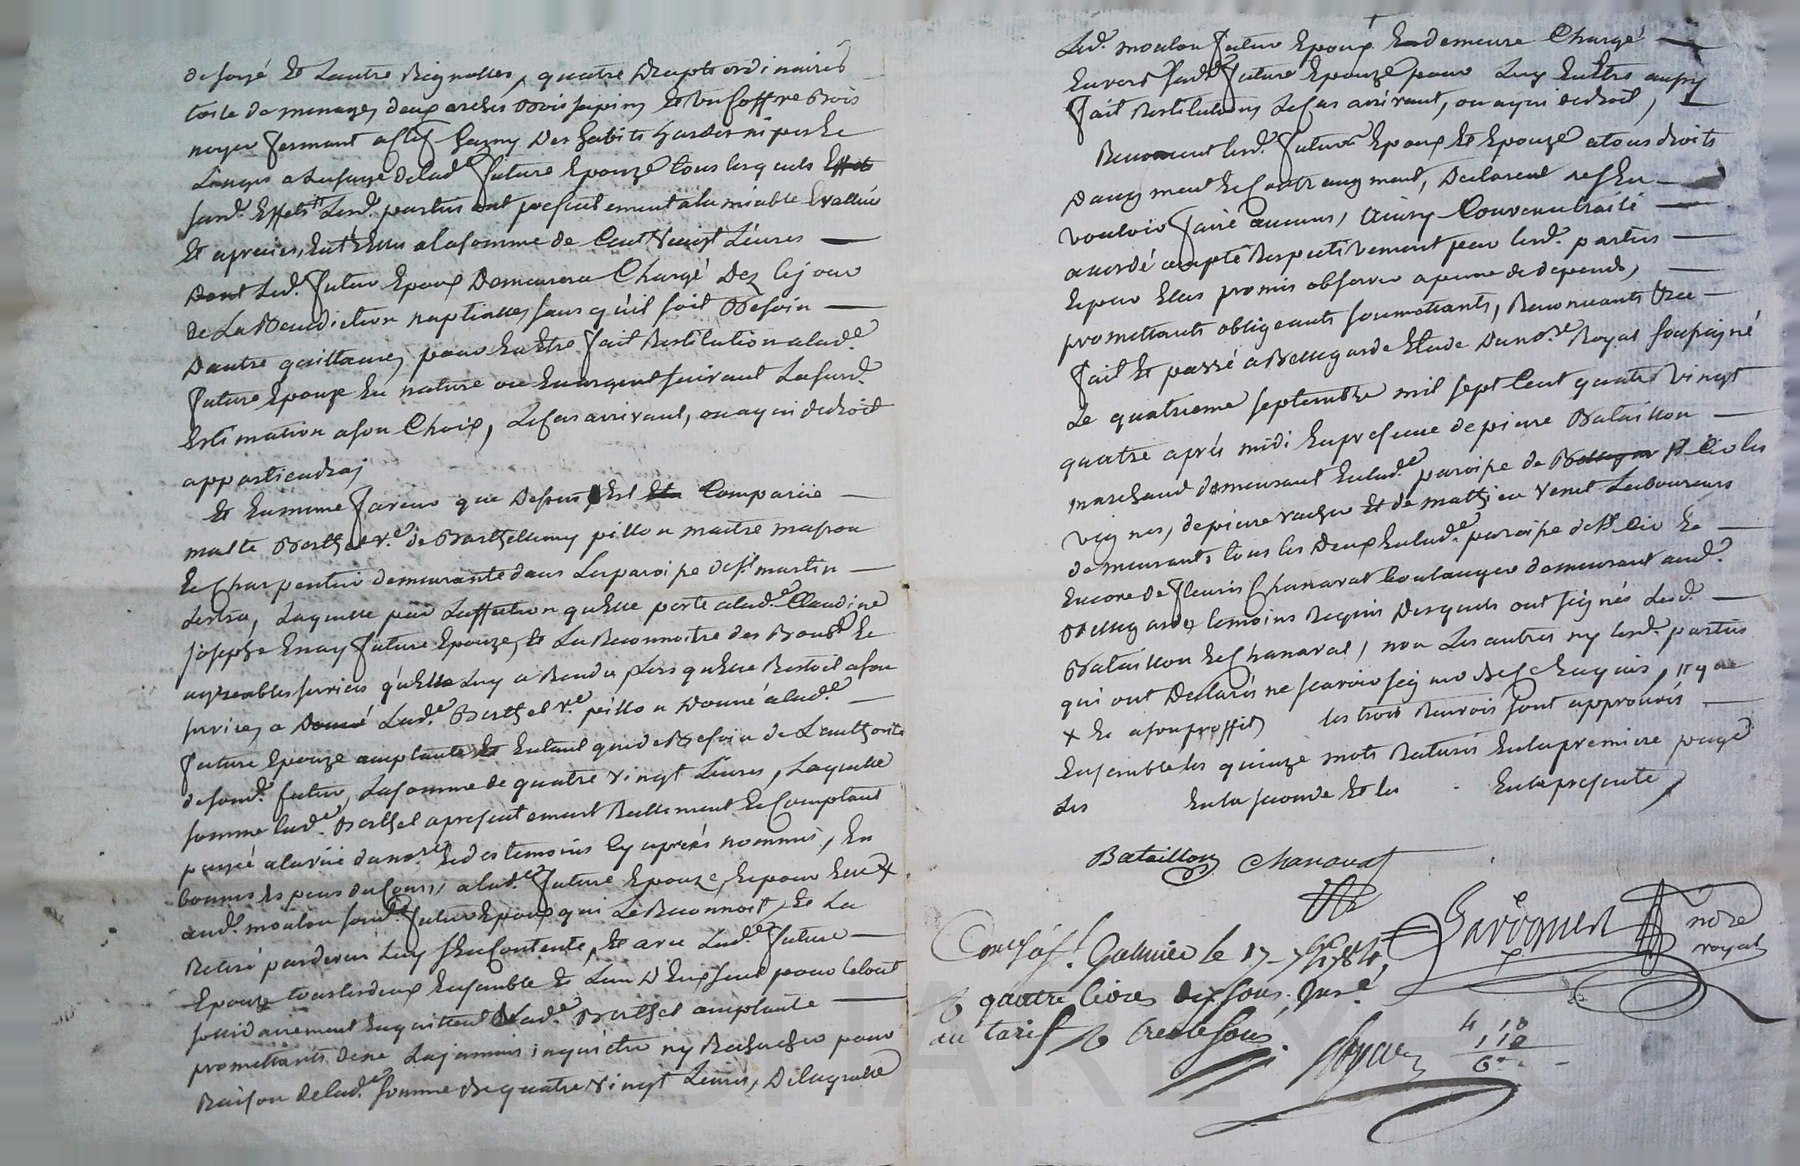 de soye et Lautre Reignasses, quatre draps ordinaires
toile de menage, deux arches Bois sapin, et un Coffre Bois
noyer fermant a clef Garny des habits hardes nipes et
Linges a Lusage de lad.e future Epouze tous lesquels Effets
sund. Effets Lesd. parties ont presentement a lamiable Evallué
et apreciés, Entr'Elles a la somme de Cent vingt Livres
Dont Led. futur Epoux Demeurera Chargé Dez le jour
de La Benediction nuptialle, sans qu'il soit Besoin
Dautre quittance, pour En Etre fait Restitution a lad.e
future Epouze En nature ou En argent suivant La susd.
Estimation a son Choix, Le Cas arrivant, ou a qui de droit
appartiendra,
Et En meme faveur que Dessus Est Comparüe
maltte Berthet v.e de Barthellemy pillon maitre masson
et Charpentier demeurante dans La paroipe de St. martin
Lestra, Laquelle par Laffection quelle porte a lad.e Claudine
josephe Enay future Epouze, et La Reconnoitre des Bons et
agreables services qu'elle Luy a Rendu Lors quelle Restoit a son
service, a Donné Lad.e Berthet v.e pillon Donné a lad.e
future Epouze acceptante Et Entant que de Besoin de L'authorité
de sond. futur, La somme de quatre vingt Livres, Laquelle
somme lad.e Berthet a presentement Reellement et Comptant
payé a la vüe du no.re et des temoins Cy aprés nommés, En
bonnes Especes du Cours, a lad.e future Epouze, et pour Elle X
aud. moulon sond. futur Epoux qui Le Reconnoit, et La
Retiré pardevers Luy s'En Contente, Et avec Lad.e future
Epouze tous les deux Ensemble et L'un D'Eux seul pour le tout
solidairement En quittent Lad.e Berthet acceptante
promettants de ne La jamais inquieter ny Rechercher pour
Raison de lad.e somme de quatre vingt Livres, De laquelle
Led. moulon futur Epoux En demeure Chargé
Envers sad.e future Epouze pour Luy En Etre aussy
fait Restitution, Le Cas arrivant, ou a qui de droit,
Renoncent lesd. futurs Epoux Et Epouze a tous droits
Daugment et Contre augment, Declarent ne s'En
vouloir faire aucuns, Ainsy Convenu traité
accordé accepté Respectivement par lesd. parties
et pour Elles promis observer a peine de depends,
promettants obligeants soumettants, Renonceants &ce
fait Et passé a Bellegarde Etude Du no.re Royal soussigné
Le quatrieme septembre mil sept Cent quatre vingt
quatre aprés midi En presence de pierre Bataillon
marchand demeurant En lad.e paroipe de St. Cir les
vignes, de pierre vacher Et de mathieu venet Laboureurs
demeurants tous les Deux En lad.e paroipe de St. Cir et
Encore de fleuris Chanavat boulanger demeurant aud.
Bellegarde temoins Requis Desquels ont signés Lesd.
Bataillon et Chanavat, non Les autres ny lesd. parties
qui ont Declarés ne sçavoir signer de ce Enquis, il y a
X Et a son proffit, les trois Renvois sont approuvés
Ensemble les quinze mots Raturés En la premiere page
Les En la seconde Et les En la presente,
Bataillon Chanavat
notre
royal
Con.lé à St. Galmier le 17 7bre 1784,
R quatre livres dix sous. Jns.é
au tarif R trente sous.
4 10
1 10
6